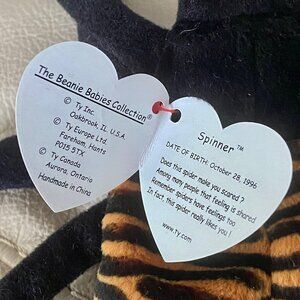 The Beanie Babies Collection®
© Ty Inc.
Oakbrook IL. U.S.A.
© Ty Europe Ltd.
Fareham, Hants
PO15 5TX
© Ty Canada
Aurora, Ontario
Handmade in China
Spinner™
DATE OF BIRTH: October 28, 1996
Does this spider make you scared?
Among many people that feeling is shared
Remember spiders have feelings too
In fact, this spider really likes you!
www.ty.com